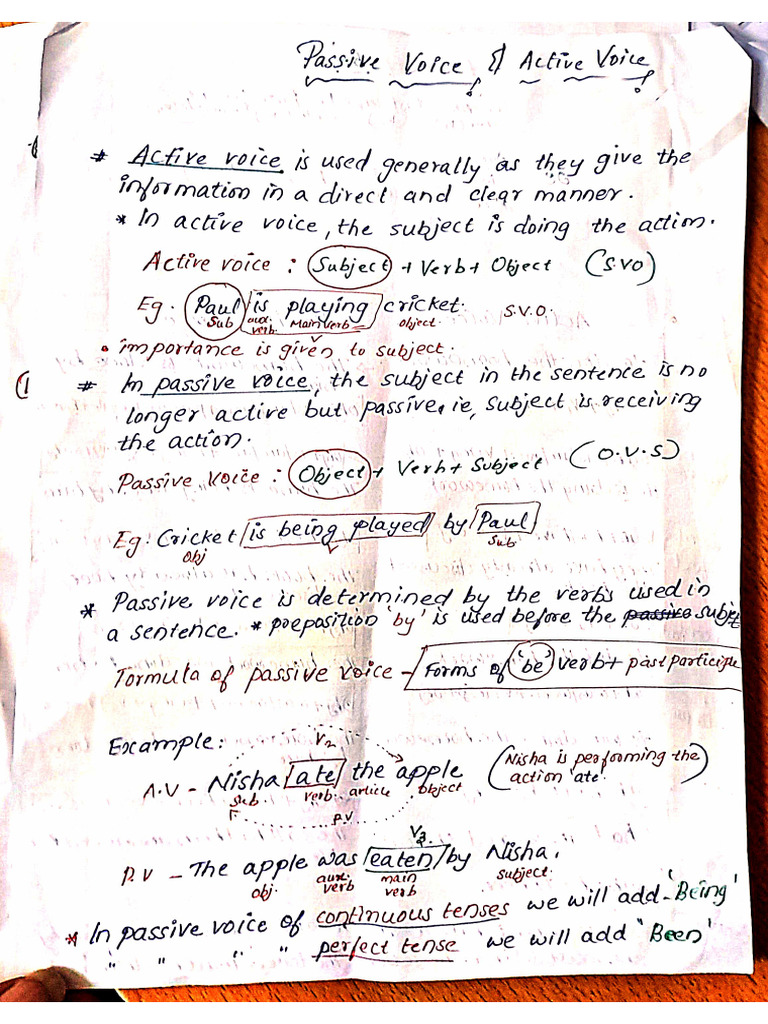 Passive Voice & Active Voice
* Active voice is used generally as they give the
information in a direct and clear manner.
* In active voice, the subject is doing the action.
Active voice : Subject + Verb + Object (S.VO)
Eg. Paul is playing cricket. S.V.O.
Sub aux. verb. Main verb object.
• importance is given to subject.
1 * In passive voice, the subject in the sentence is no
longer active but passive, ie, subject is receiving
the action.
Passive Voice : Object + Verb + Subject (O.V.S)
Eg: Cricket is being played by Paul
Obj Sub.
* Passive voice is determined by the verbs used in
a sentence. * preposition 'by' is used before the passive subject
Formula of passive voice - Forms of 'be' verb + past participle
Example:
V2
A.V - Nisha ate the apple (Nisha is performing the
action 'ate')
sub. verb. article object
P.V
V3
P.V - The apple was eaten by Nisha.
obj. aux. verb main verb subject.
* In passive voice of continuous tenses we will add - 'Being'
" " " " perfect tense 'we will add 'Been'